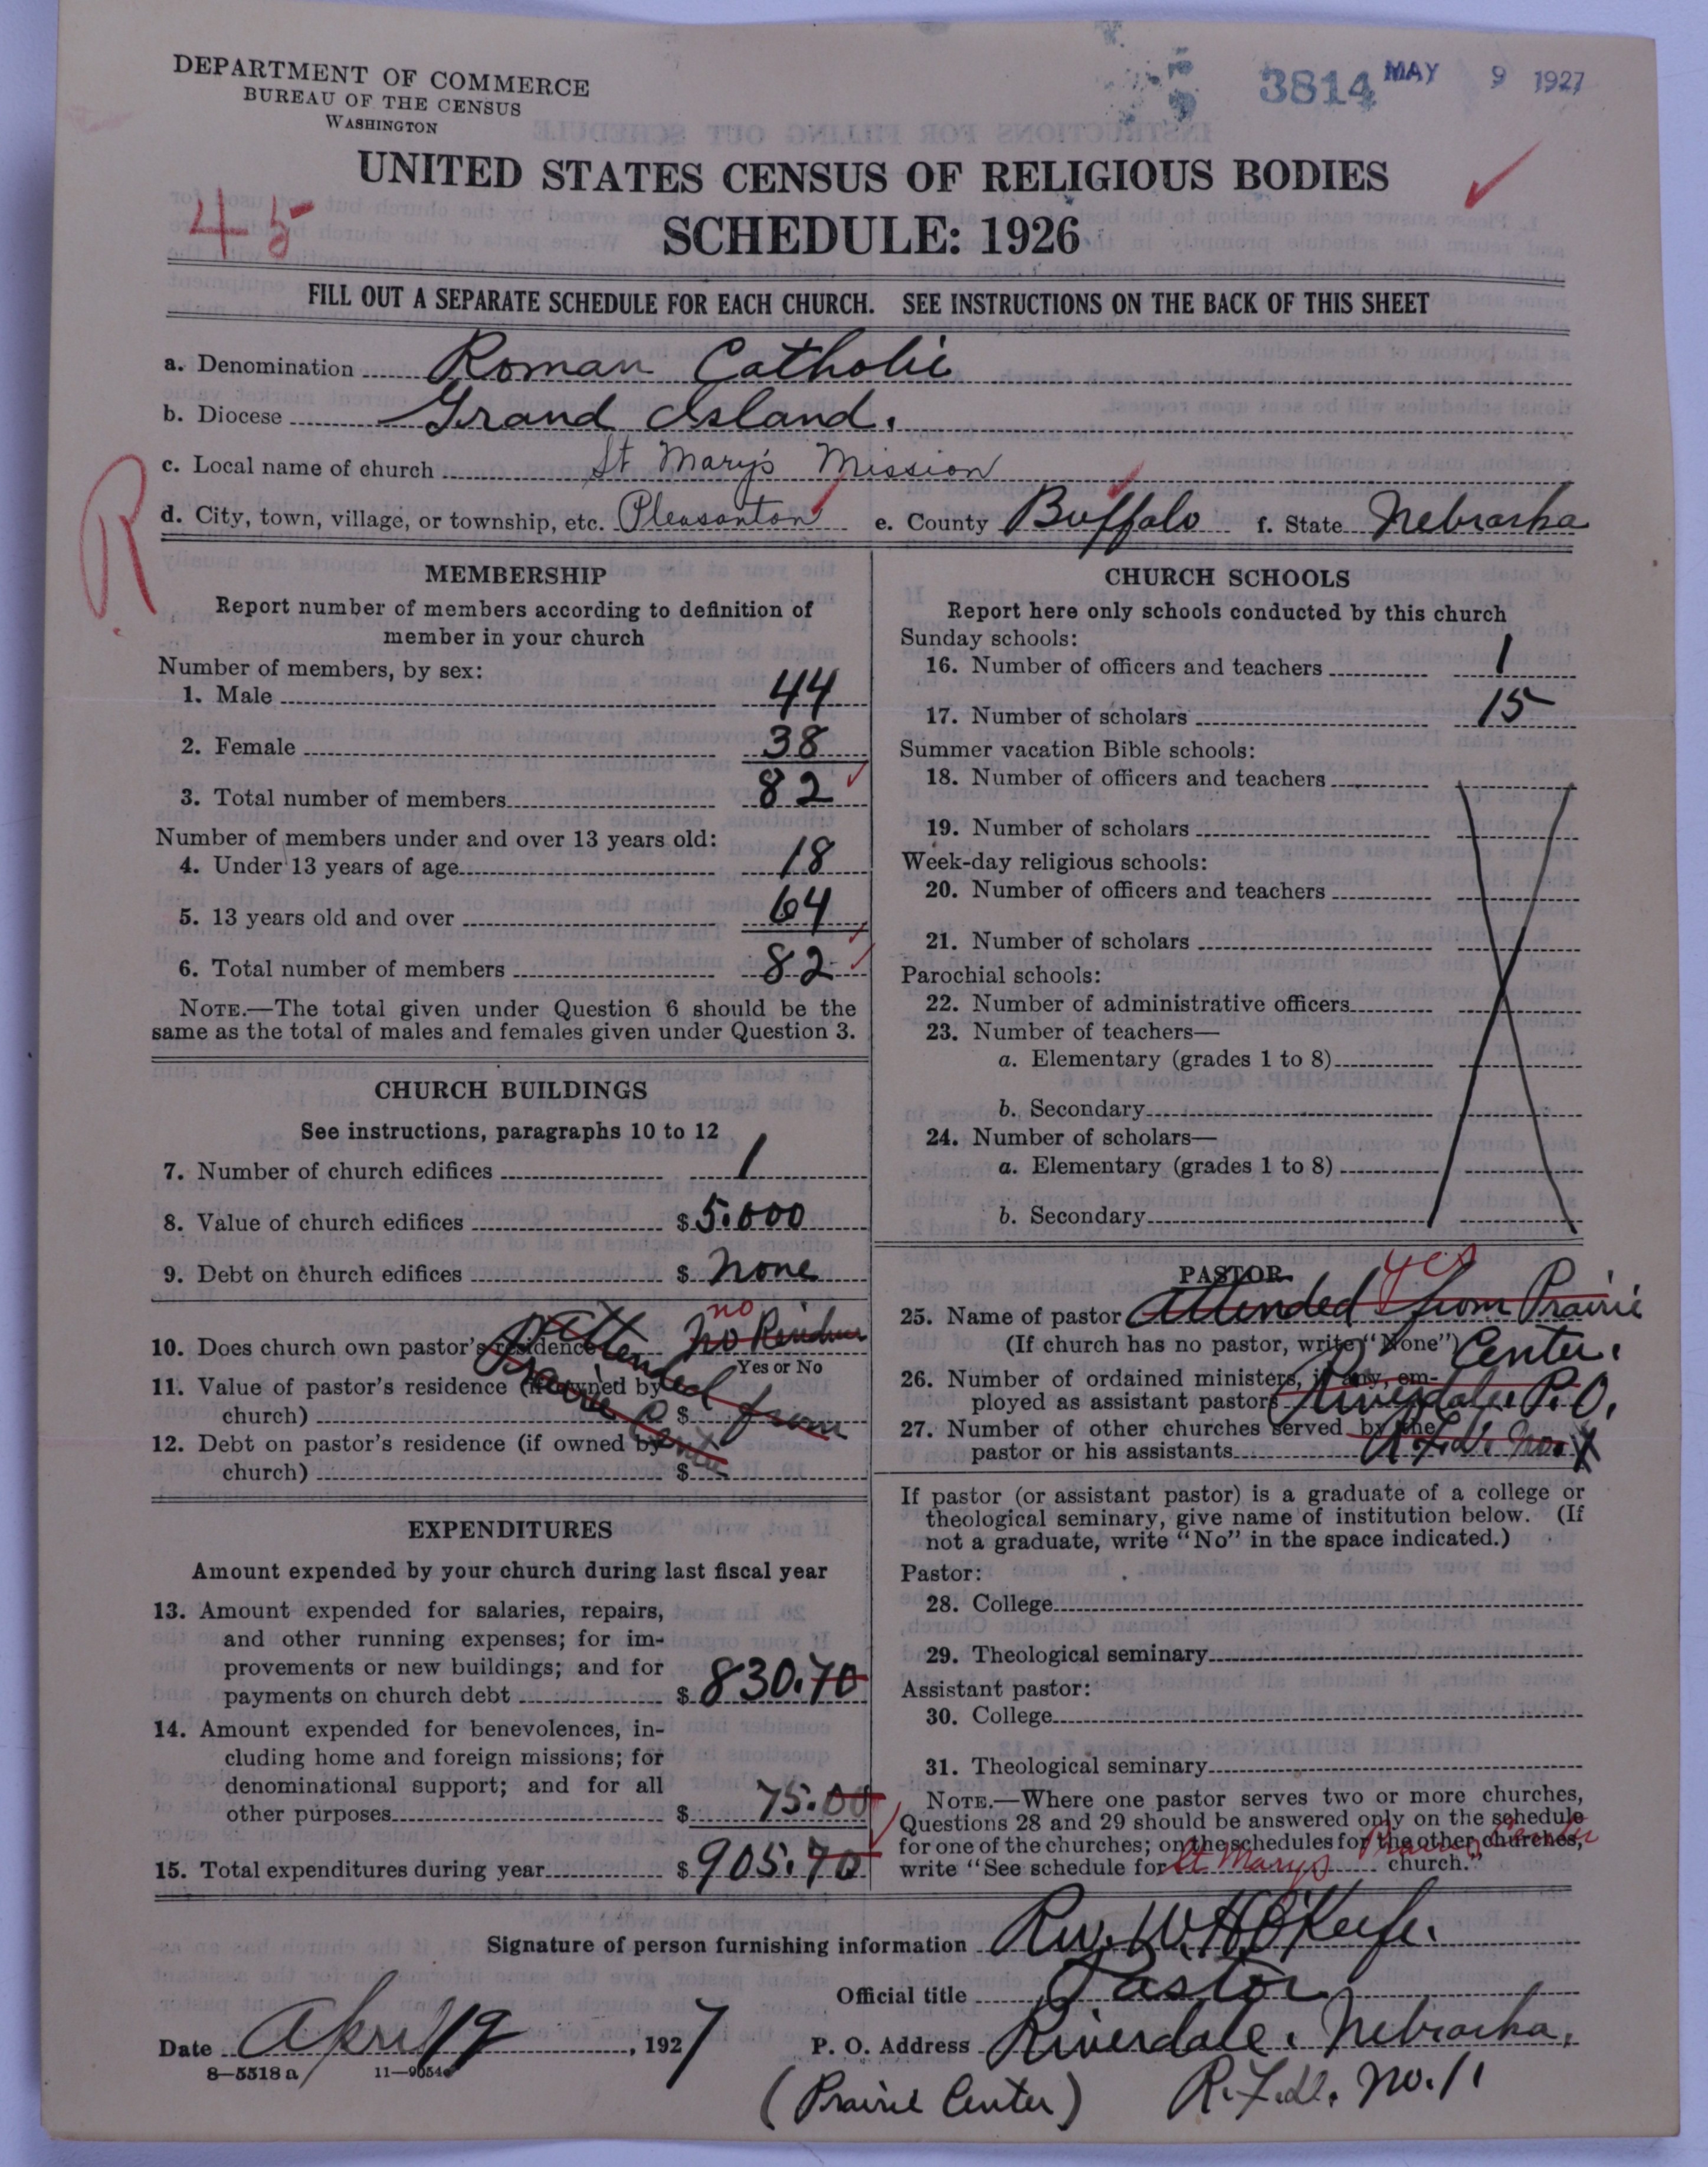 DEPARTMENT OF COMMERCE
BUREAU OF THE CENSUS
WASHINGTON
3814 MAY 9 1927
UNITED STATES CENSUS OF RELIGIOUS BODIES
SCHEDULE: 1926
45
FILL OUT A SEPARATE SCHEDULE FOR EACH CHURCH. SEE INSTRUCTIONS ON THE BACK OF THIS SHEET
a. Denomination Roman Catholic
b. Diocese Grand Island.
c. Local name of church St Mary's Mission
R
d. City, town, village, or township, etc. Pleasanton e. County Buffalo f. State Nebraska
MEMBERSHIP
Report number of members according to definition of
member in your church
Number of members, by sex:
1. Male 44
2. Female 38
3. Total number of members 82
Number of members under and over 13 years old:
4. Under 13 years of age 18
5. 13 years old and over 64
6. Total number of members 82
NOTE.—The total given under Question 6 should be the
same as the total of males and females given under Question 3.
CHURCH BUILDINGS
See instructions, paragraphs 10 to 12
7. Number of church edifices 1
8. Value of church edifices $ 5.000
9. Debt on church edifices $ None
10. Does church own pastor's residence no No
Yes or No
Attended from Prairie Center
11. Value of pastor's residence (if owned by
church) $
12. Debt on pastor's residence (if owned by
church) $
EXPENDITURES
Amount expended by your church during last fiscal year
13. Amount expended for salaries, repairs,
and other running expenses; for im-
provements or new buildings; and for
payments on church debt $ 830.70
14. Amount expended for benevolences, in-
cluding home and foreign missions; for
denominational support; and for all
other purposes $ 75.00
15. Total expenditures during year $ 905.70
CHURCH SCHOOLS
Report here only schools conducted by this church
Sunday schools:
16. Number of officers and teachers 1
17. Number of scholars 15
Summer vacation Bible schools:
18. Number of officers and teachers
19. Number of scholars
Week-day religious schools:
20. Number of officers and teachers
21. Number of scholars
Parochial schools:
22. Number of administrative officers
23. Number of teachers—
a. Elementary (grades 1 to 8)
b. Secondary
24. Number of scholars—
a. Elementary (grades 1 to 8)
b. Secondary
PASTOR yes
25. Name of pastor Attended from Prairie
(If church has no pastor, write "None") Center.
26. Number of ordained ministers, if any, em-
ployed as assistant pastors Riverdale P.O.
27. Number of other churches served by the
pastor or his assistants R.F.d. No. 1
If pastor (or assistant pastor) is a graduate of a college or
theological seminary, give name of institution below. (If
not a graduate, write "No" in the space indicated.)
Pastor:
28. College
29. Theological seminary
Assistant pastor:
30. College
31. Theological seminary
NOTE.—Where one pastor serves two or more churches,
Questions 28 and 29 should be answered only on the schedule
for one of the churches; on the schedules for the other churches,
write "See schedule for St Marys Prairie Center church."
Signature of person furnishing information Rev. W. H. O'Keefe.
Official title Pastor
Date April 19, 1927 P. O. Address Riverdale. Nebraska.
8—5518 a 11—9054
(Prairie Center) R.F.d. No. 1.